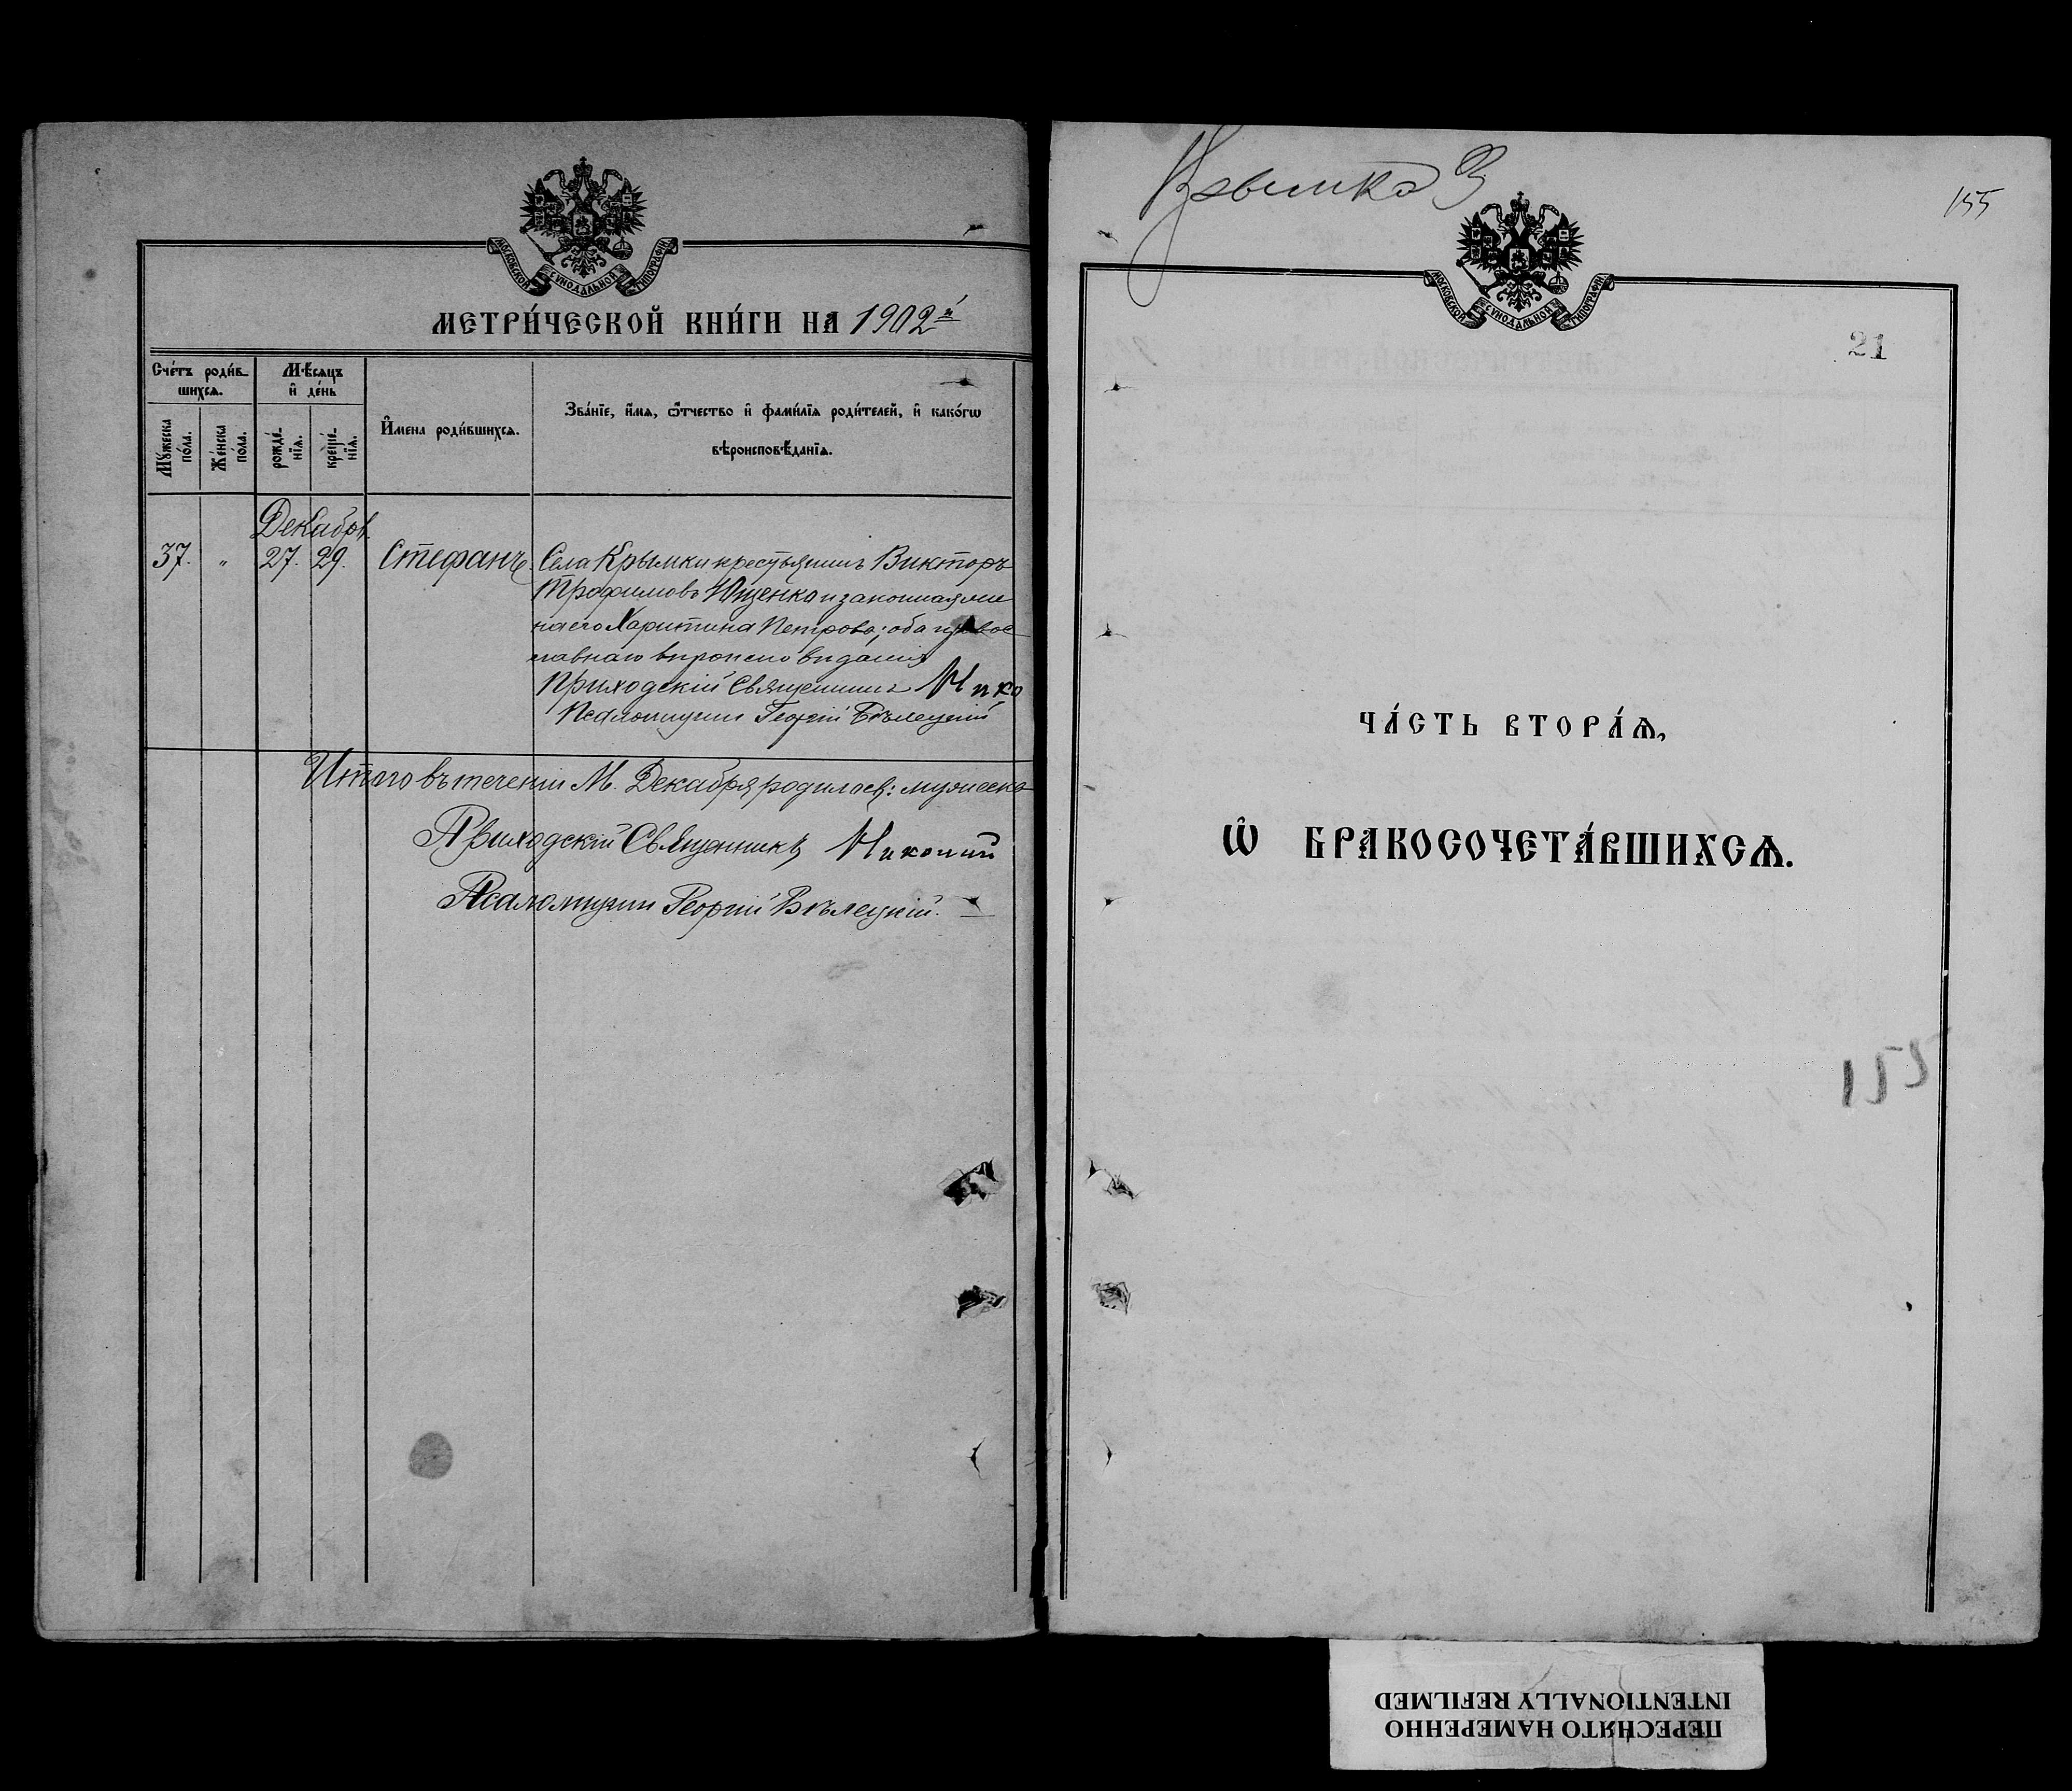 МОСКОВСКОЙ СУНОДАЛЬНОЙ ТИПОГРАФІИ
МЕТРИ́ЧЕСКОЙ КНИ́ГИ НА 1902й
Сче́тъ роди́в-
шихся.
Мѣсяцъ
и҆ де́нь
Мꙋ́жеска
по́ла.
Же́нска
по́ла.
рожде́-
нїя.
креще́-
нїя.
И҆мена роди́вшихся.
Зва́нїе, и҆́мя, ѻ҆́тчество и҆ фами́лїя роди́телей, и҆ како́гѡ
вѣроисповѣ́данїя.
Декабрь
37. „ 27. 29. Стефанъ. Села Крымки крестьянинъ Викторъ
Трофимовъ Ющенко и законная же
на его Харитина Петрова; оба правос
лавнаго вѣроисповѣданія
Приходскій Священникъ Нико
Псаломщикъ Георгій Бѣлецкій
Итого въ теченіи М. Декабря родилось: мужеска
Приходскій Священникъ
Псаломщикъ Георгій Бѣлецкій.
Крымка
155
МОСКОВСКОЙ СУНОДАЛЬНОЙ ТИПОГРАФІИ
21
ЧА́СТЬ ВТОРА́Ѧ,
Ѡ҆ БРАКОСОЧЕТА́ВШИХСѦ.
155
ПЕРЕСНЯТО НАМЕРЕННО
INTENTIONALLY REFILMED